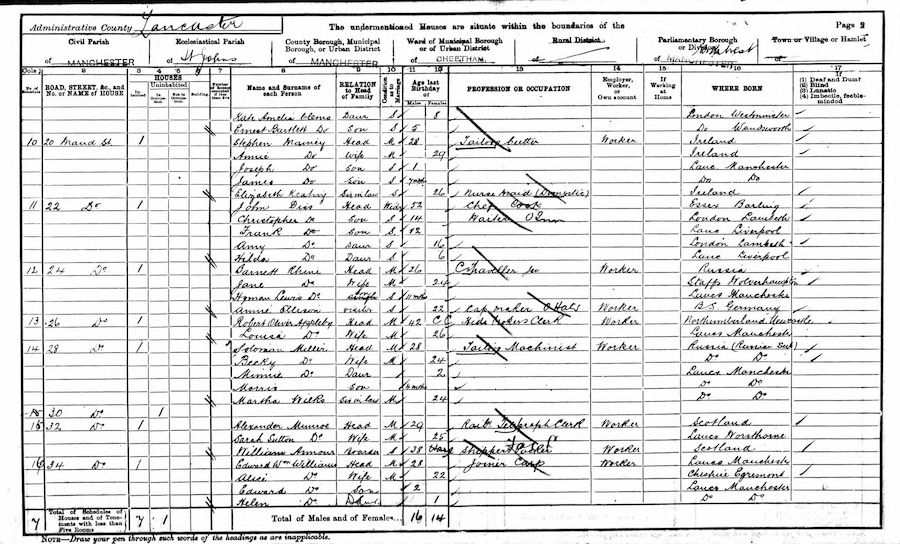 Administrative County Lancaster The undermentioned Houses are situate within the boundaries of the Page 2
Civil Parish Ecclesiastical Parish County Borough, Municipal Borough, or Urban District Ward of Municipal Borough or of Urban District Rural District Parliamentary Borough or Division Town or Village or Hamlet
of MANCHESTER of St Johns of MANCHESTER of CHEETHAM of of MANCHESTER of
Cols: 1 2 3 4 5 6 7 8 9 10 11 12 13 14 15 16 17
No. of Schedule ROAD, STREET, &c., and No. or NAME of HOUSE HOUSES Inhabited Uninhabited In Occupation Not in Occupation Building Name and Surname of each Person RELATION to Head of Family Condition as to Marriage Age last Birthday of Males Females PROFESSION OR OCCUPATION Employer, Worker, or Own account If Working at Home WHERE BORN If (1) Deaf and Dumb (2) Blind (3) Lunatic (4) Imbecile, feeble-minded
Kate Amelia Clems Daur S 8 London Westminster
Ernest Bartlett Do Son S 5 Do Wandsworth
10 20 Maud St 1 Stephen Mainey Head M 28 Tailors Cutter Worker Ireland
Annie Do Wife M 29 Ireland
Joseph Do Son S 1 Lanc Manchester
James Do Son S 7 mths Do Do
Elizabeth Keating Sis in law S 26 Nurse Maid (Domestic) Ireland
11 22 Do 1 John Diss Head Widr 52 Chef Cook Essex Barking
Christopher Do Son S 14 Waiter London Lambeth
Frank Do Son S 12 Lanc Liverpool
Amy Do Daur S 16 London Lambeth
Hilda Do Daur S 6 Lanc Liverpool
12 24 Do 1 Barnett Head M 26 Traveller Worker Russia
Jane Do Wife M 24 Staffs Wolverhampton
Hyman Lewis Do Son S 11 mths Lancs Manchester
Annie Visitor S 22 Cap maker Worker B.S. Germany
13 26 Do 1 Robert Oliver Appleby Head M 42 Clerk Worker Northumberland Newcastle
Louisa Do Wife M 26 Lancs Manchester
14 28 Do 1 Solomon Miller Head M 28 Tailors Machinist Worker Russia (Russian Sub)
Becky Do Wife M 24 Do Do
Minnie Do Daur 2 Lancs Manchester
Morris Son mths Do Do
Martha Wilks Sis in law M 24 Do Do
15 30 Do 1
15 32 Do 1 Alexander Munroe Head M 29 Rail Telegraph Clerk Worker Scotland
Sarah Sutton Do Wife M 25 Lancs Worsthorne
William Armour Boarder S 38 Shippers Packer Worker Scotland
16 34 Do 1 Edward Wm Williams Head M 28 Joiner Carp Worker Lancs Manchester
Alice Do Wife M 22 Cheshire Egremont
Edward Do Son 2 Lancs Manchester
Helen Do Daur 1 Do Do
7 Total of Schedules of Houses and of Tenements with less than Five Rooms 7 1 Total of Males and of Females... 16 14
NOTE—Draw your pen through such words of the headings as are inapplicable.